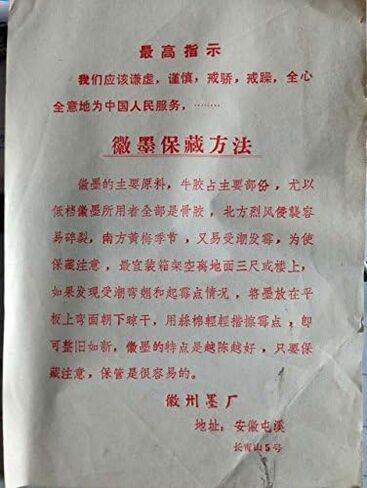 最高指示
我们应该谦虚，谨慎，戒骄，戒躁，全心
全意地为中国人民服务，………
徽墨保藏方法
徽墨的主要原料，牛胶占主要部份，尤以
低档徽墨所用者全部是骨胶，北方烈风侵袭容
易碎裂，南方黄梅季节，又易受潮发霉，为使
保藏注意，最宜装箱架空离地面三尺或楼上，
如果发现受潮弯翘和起霉点情况，将墨放在平
板上弯面朝下晾干，用絲棉輕輕揩擦霉点，即
可整旧如新，徽墨的特点是越陈越好，只要保
藏注意，保管是很容易的。
徽州墨厂
地址：安徽屯溪
长青山5号